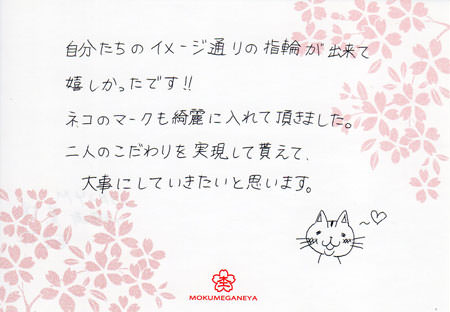 自分たちのイメージ通りの指輪が出来て
嬉しかったです!!
ネコのマークも綺麗に入れて頂きました。
二人のこだわりを実現して貰えて、
大事にしていきたいと思います。
MOKUMEGANEYA